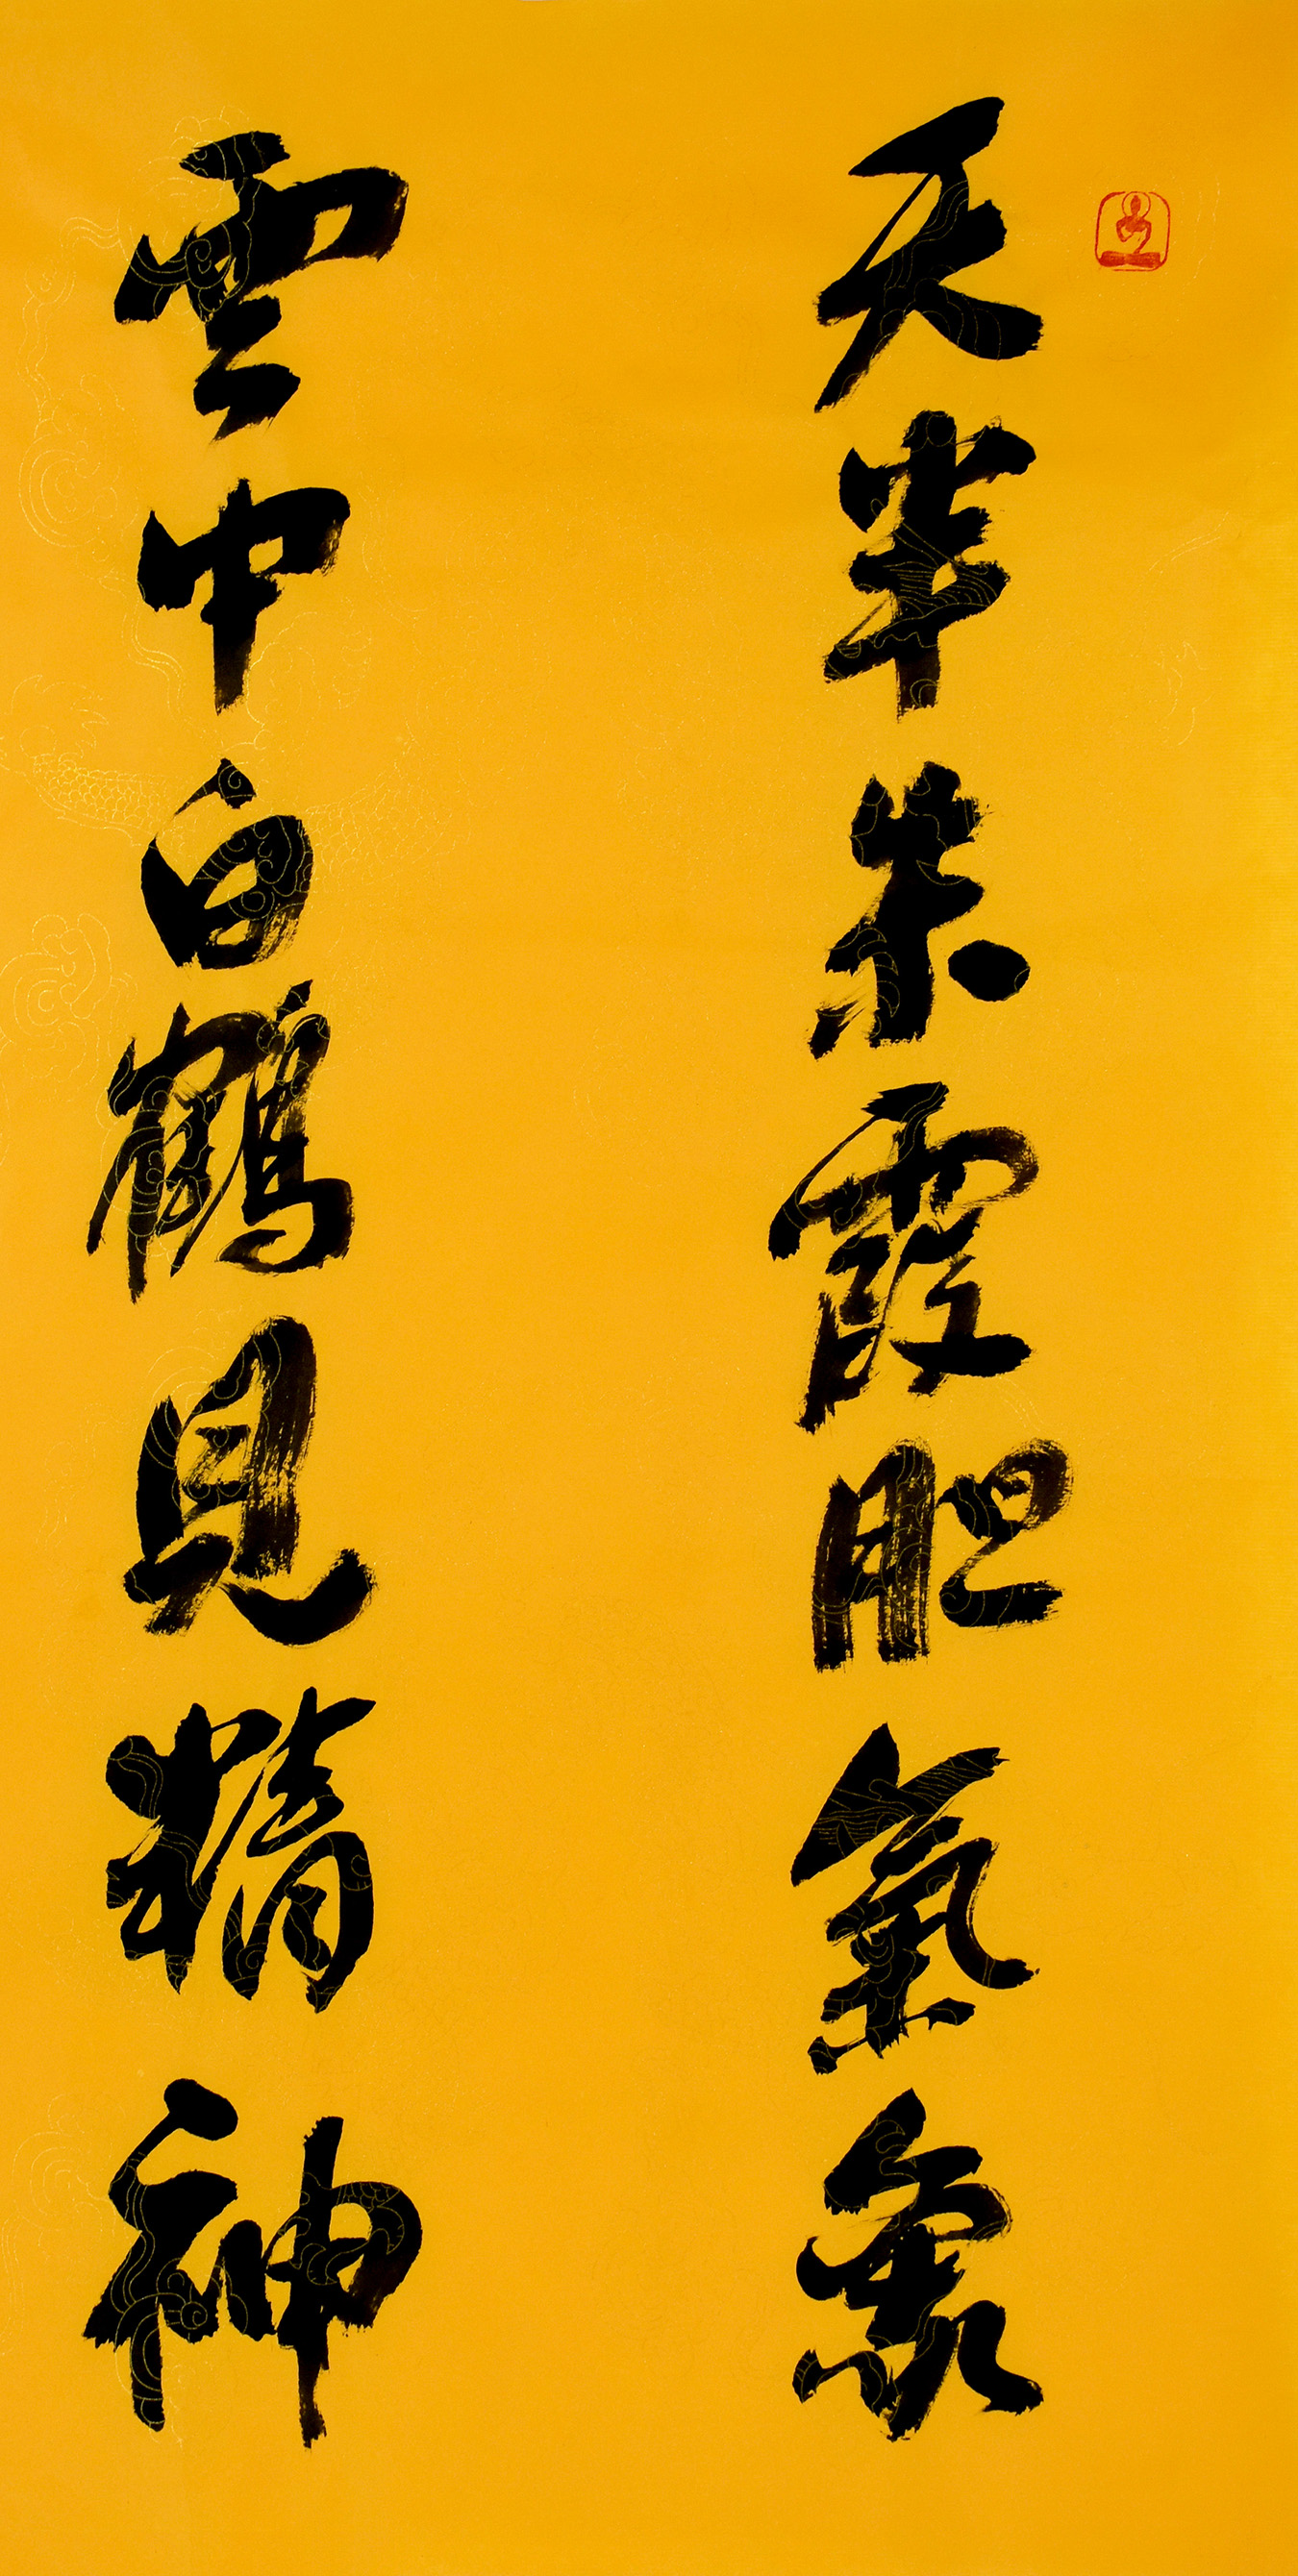 天半朱霞胆氣象
雲中白鶴見精神